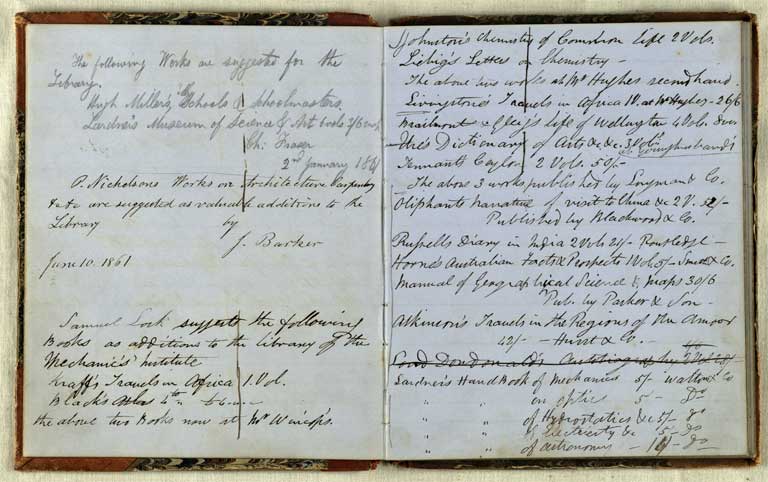 The following Works are suggested for the
Library.
Hugh Millers, Schools & Schoolmasters,
Lardner's Museum of Science & Art 6 vols
Ch: Fraser
2nd January 1861
P. Nicholsons Works on Architecture Carpentry
&c &c are suggested as valuable additions to the
Library by
J. Barker
June 10. 1861
Samuel Lock suggests the following
Books as additions to the library of the
Mechanic's Institute
Krapf's Travels in Africa 1. Vol.
Black's Atlas
the above two Books now at Mr
Johnston's Chemistry of Common life 2 Vols.
Liebig's Letters on Chemistry -
The above two works at Mr Hughes second hand
Livingstone's Travels in Africa 1V. at Mr Hughes - 26/6
Brialmont & Gleig's life of Wellington 4 Vols.
Ure's Dictionary of Arts &c &c 3 Vols
Tennants Ceylon 2 Vols. 50/-
The above 3 works published by Longman & Co.
Oliphants narrative of visit to China &c 2V.
Published by Blackwood & Co.
Russells Diary in India 2 Vols 21/- Routledge -
Horne's Australian Facts & Prospects 1 Vol 5/- Smith & Co.
Manual of Geographical Science & maps 30/6
Pub. by Parker & Son -
Atkinson's Travels in the Regions of the Amoor
42/- - Hurst & Co. -
Lord Dondonald's Autobiography
Lardner's Hand Book of Mechanics 5/- Walton & Co
" " on optics 5 - do
" " of Hydrostatics &c 5/- do
" " of Electricity &c 5/- do
" " of astronomy - 10/- do